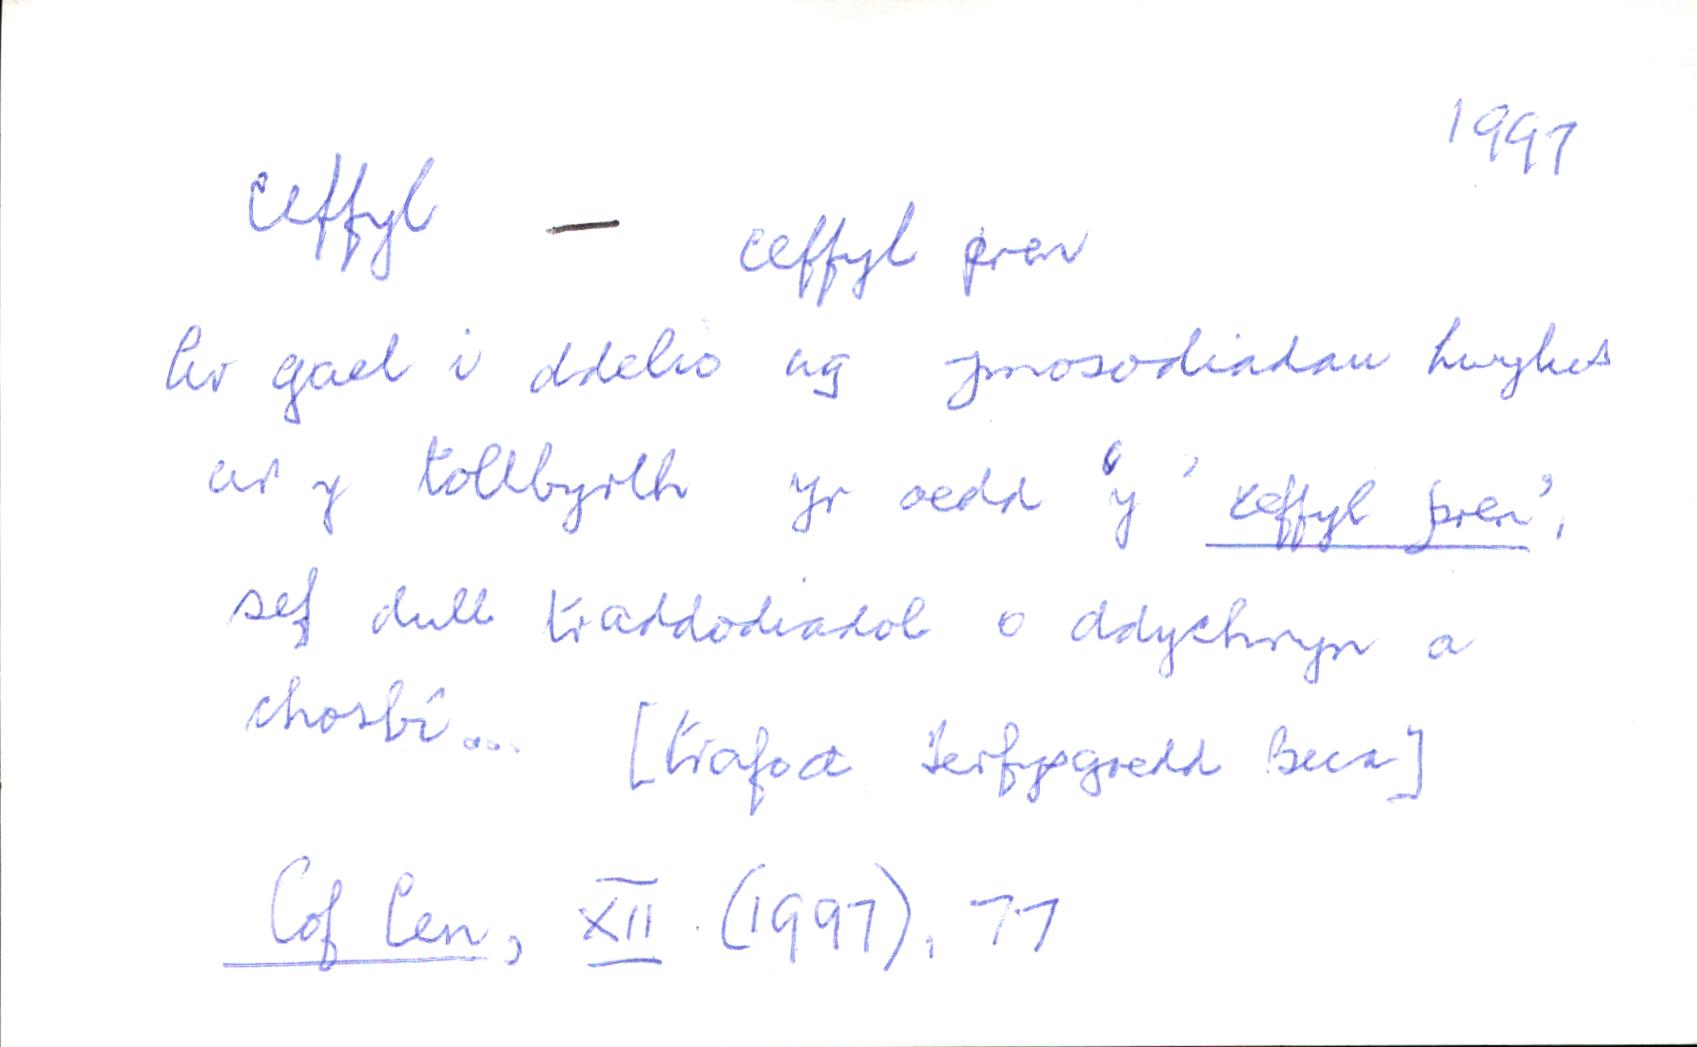 1997
ceffyl — ceffyl pren
Ar gael i ddelio ag ymosodiadau
ar y tollbyrth yr oedd 'y 'ceffyl pren',
sef dull traddodiadol o ddychryn a
chosbi... [trafod Terfysgoedd Beca]
Cof Cen, XII (1997), 77